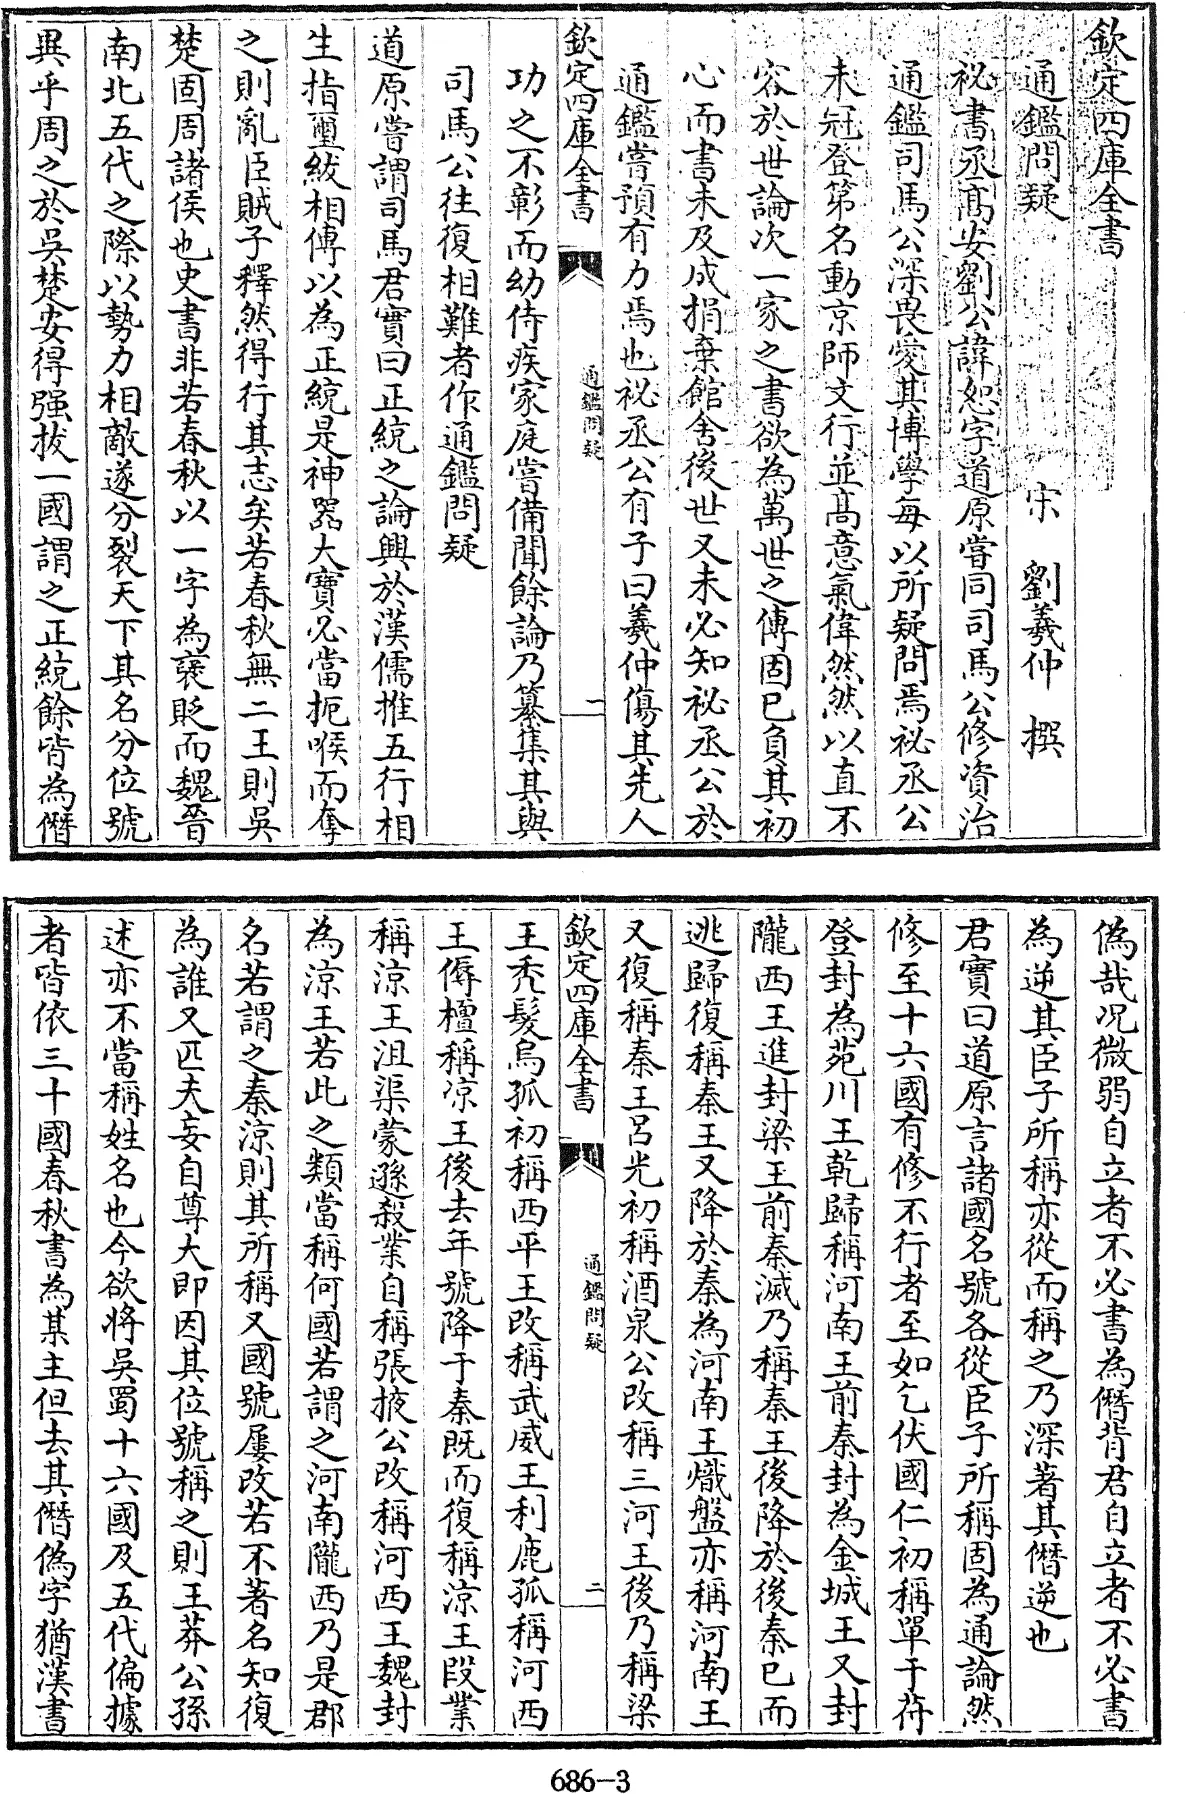 欽定四庫全書
通鑑問疑
宋 劉羲仲 撰
秘書丞髙安劉公諱恕字道原嘗同司馬公修資治
通鑑司馬公深畏愛其博學每以所疑問焉祕丞公
未冠登第名動京師文行並髙意氣偉然然以直不
容於世論次一家之書欲為萬世之傳固已負其初
心而書未及成捐棄館舍後世又未必知祕丞公於
通鑑嘗預有力焉也祕丞公有子曰羲仲傷其先人
欽定四庫全書
通鑑問疑
一
功之不彰而幼侍疾家庭嘗備聞餘論乃纂集其與
司馬公往復相難者作通鑑問疑
道原嘗謂司馬君實曰正統之論興於漢儒推五行相
生指璽紱相傳以為正統是神器大寶必當扼喉而奪
之則亂臣賊子釋然得行其志矣若春秋無二王則吳
楚固周諸侯也史書非若春秋以一字為褒貶而魏晉
南北五代之際以勢力相敵遂分裂天下其名分位號
異乎周之於吳楚安得强拔一國謂之正統餘皆為僭
偽哉况微弱自立者不必書為僭背君自立者不必書
為逆其臣子所稱亦從而稱之乃深著其僭逆也
君實曰道原言諸國名號各從臣子所稱固為通論然
修至十六國有修不行者至如乞伏國仁初稱單于苻
登封為苑川王乾歸稱河南王前秦封為金城王又封
隴西王進封梁王前秦滅乃稱秦王後降於後秦已而
逃歸復稱秦王又降於秦為河南王熾盤亦稱河南王
又復稱秦王呂光初稱酒泉公改稱三河王後乃稱梁
欽定四庫全書
通鑑問疑
二
王禿髮烏孤初稱西平王改稱武威王利鹿孤稱河西
王傉檀稱凉王後去年號降于秦既而復稱凉王段業
稱凉王沮渠蒙遜殺業自稱張掖公改稱河西王魏封
為凉王若此之類當稱何國若謂之河南隴西乃是郡
名若謂之秦凉則其所稱又國號屢改若不著名知復
為誰又匹夫妄自尊大即因其位號稱之則王莽公孫
述亦不當稱姓名也今欲將吳蜀十六國及五代偏據
者皆依三十國春秋書為某主但去其僭偽字猶漢書
686-3